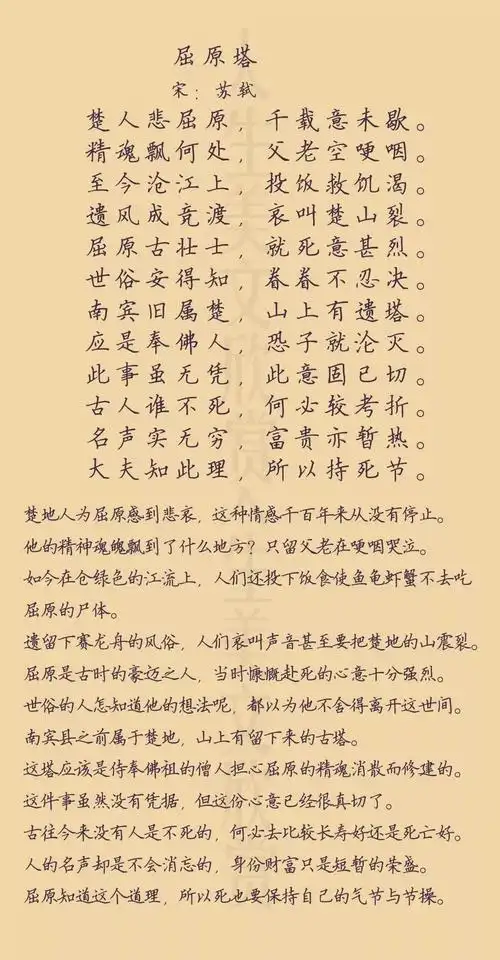 屈原塔
宋：苏轼
楚人悲屈原，千载意未歇。
精魂飘何处，父老空哽咽。
至今沧江上，投饭救饥渴。
遗风成竞渡，哀叫楚山裂。
屈原古壮士，就死意甚烈。
世俗安得知，眷眷不忍决。
南宾旧属楚，山上有遗塔。
应是奉佛人，恐子就沦灭。
此事虽无凭，此意固已切。
古人谁不死，何必较考折。
名声实无穷，富贵亦暂热。
大夫知此理，所以持死节。
楚地人为屈原感到悲哀，这种情感千百年来从没有停止。
他的精神魂魄飘到了什么地方？只留父老在哽咽哭泣。
如今在仓绿色的江流上，人们还投下饭食使鱼龟虾蟹不去吃
屈原的尸体。
遗留下赛龙舟的风俗，人们哀叫声音甚至要把楚地的山震裂。
屈原是古时的豪迈之人，当时慷慨赴死的心意十分强烈。
世俗的人怎知道他的想法呢，都以为他不舍得离开这世间。
南宾县之前属于楚地，山上有留下来的古塔。
这塔应该是侍奉佛祖的僧人担心屈原的精魂消散而修建的。
这件事虽然没有凭据，但这份心意已经很真切了。
古往今来没有人是不死的，何必去比较长寿好还是死亡好。
人的名声却是不会消忘的，身份财富只是短暂的荣盛。
屈原知道这个道理，所以死也要保持自己的气节与节操。